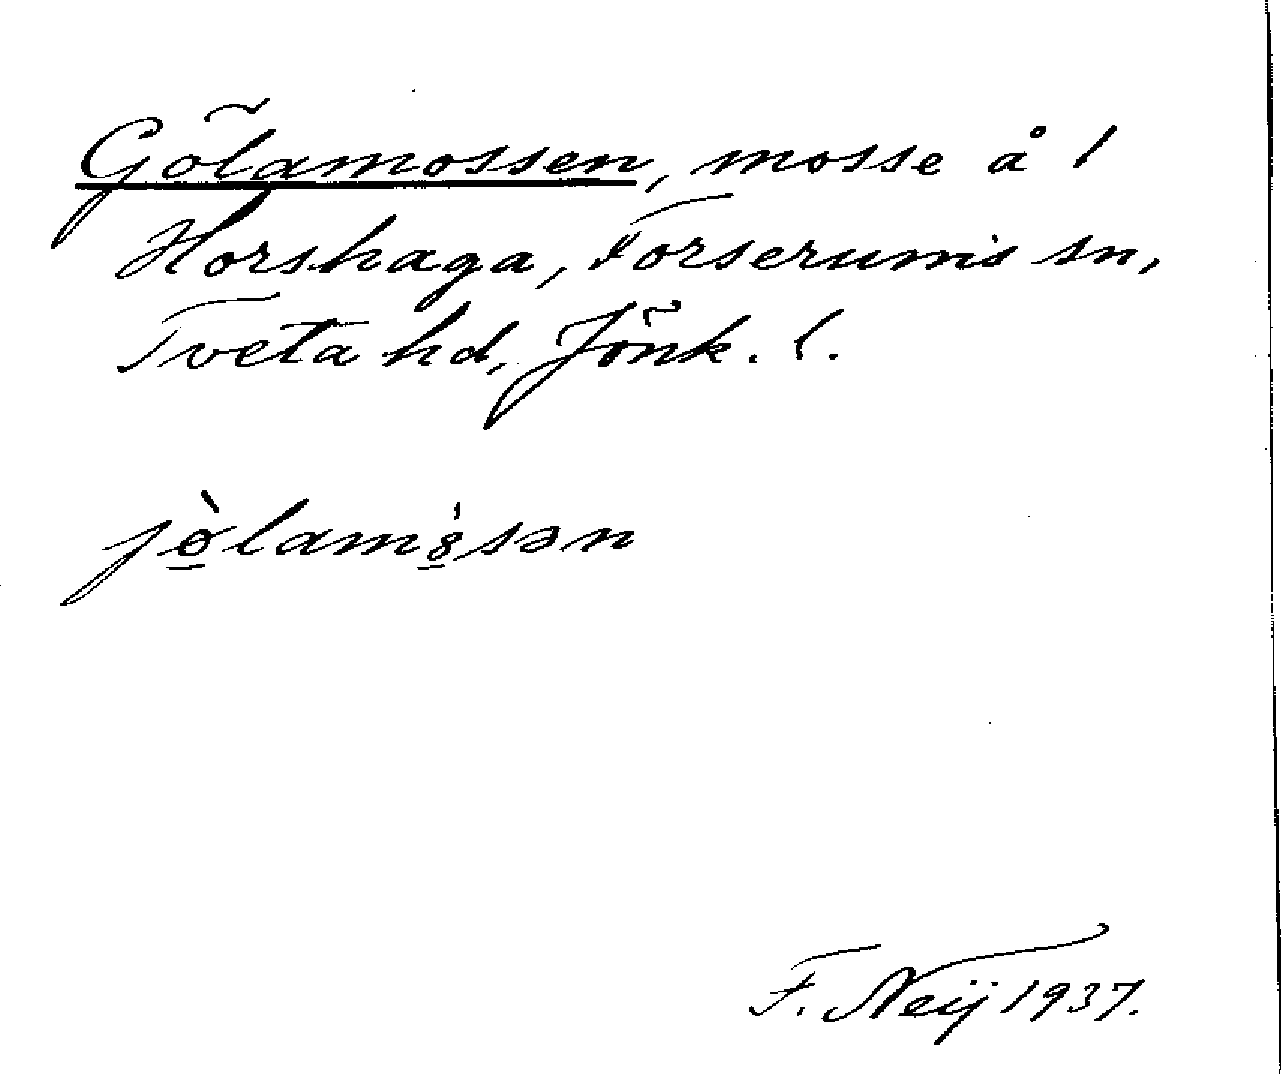 Gölamossen, mosse å 1
Horshaga, Forserums sn,
Tveta hd, Jönk. l.
jòlamósən
F. Neij 1937.